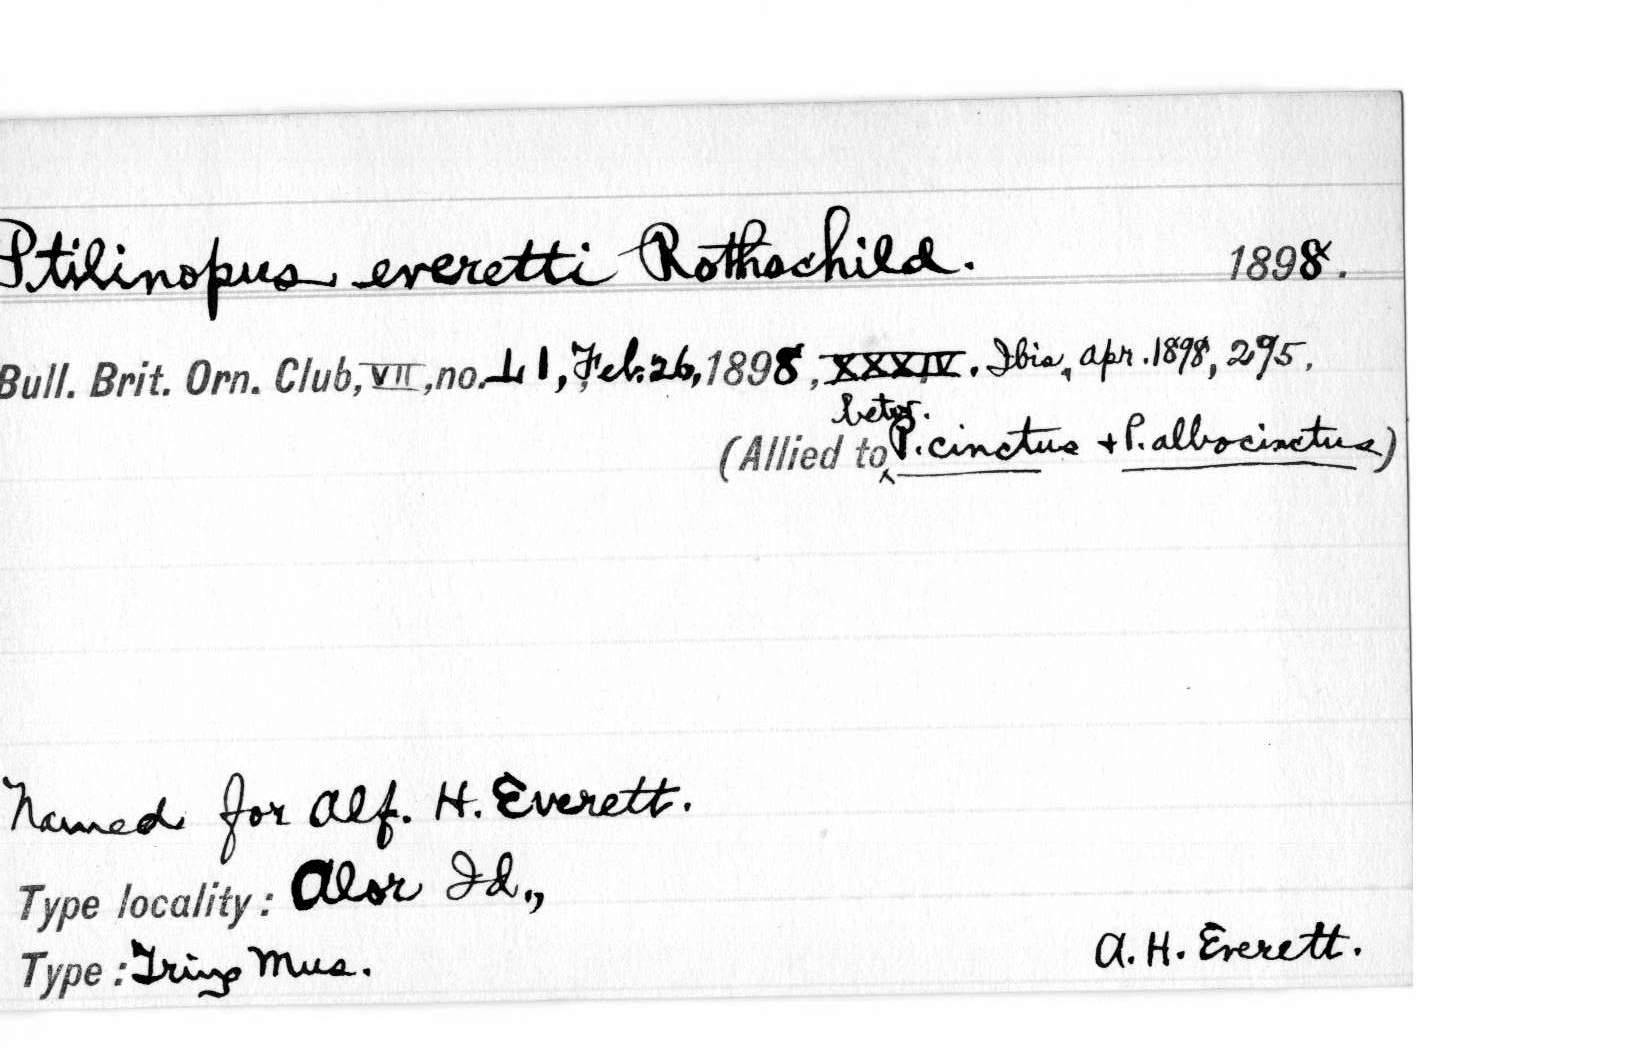 Ptilinopus everetti Rothschild. 1898.
Bull. Brit. Orn. Club, VII, no. L1, Feb. 26, 1898, XXXIV. Ibis, Apr. 1898, 295.
betw.
(Allied to P. cinctus + P. albocinctus)
Named for Alf. H. Everett.
Type locality: Alor Id.,
Type: Tring Mus. A. H. Everett.